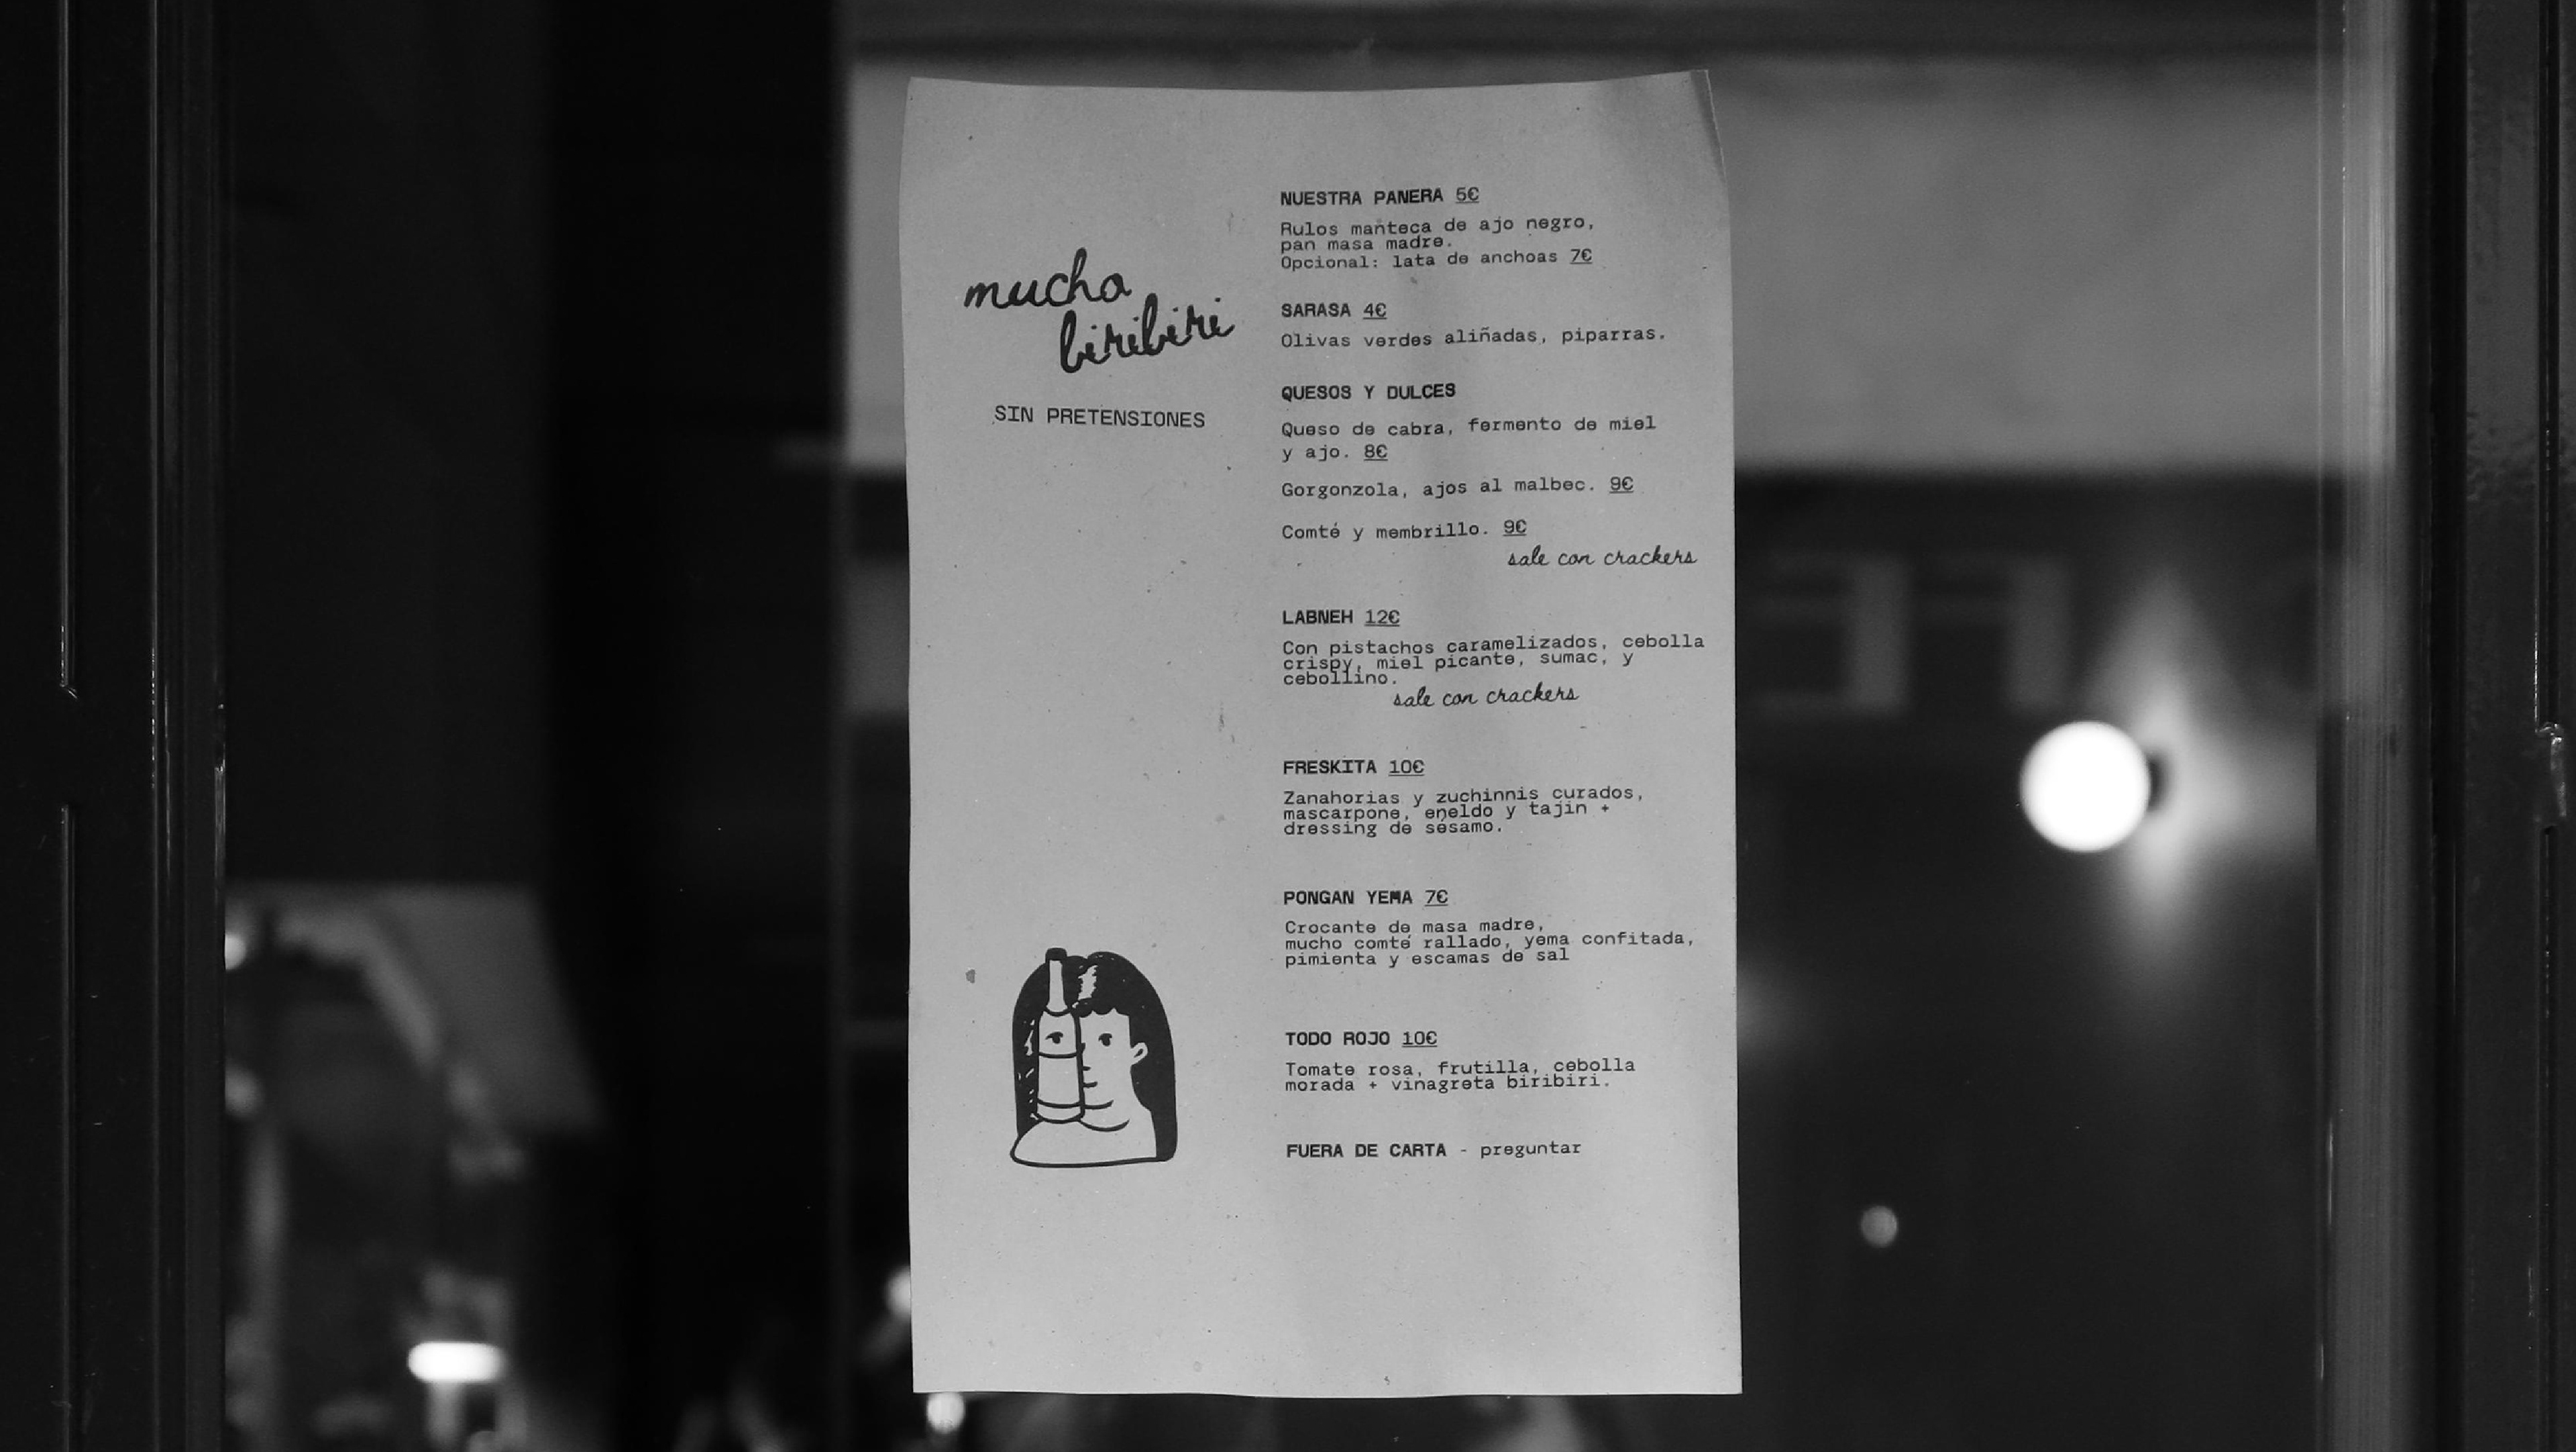 mucho
biribiri
SIN PRETENSIONES
NUESTRA PANERA 5€
Rulos manteca de ajo negro,
pan masa madre.
Opcional: lata de anchoas 7€
SARASA 4€
Olivas verdes aliñadas, piparras.
QUESOS Y DULCES
Queso de cabra, fermento de miel
y ajo. 8€
Gorgonzola, ajos al malbec. 9€
Comté y membrillo. 9€
sale con crackers
LABNEH 12€
Con pistachos caramelizados, cebolla
crispy, miel picante, sumac, y
cebollino.
sale con crackers
FRESKITA 10€
Zanahorias y zuchinnis curados,
mascarpone, eneldo y tajin +
dressing de sésamo.
PONGAN YEMA 7€
Crocante de masa madre,
mucho comté rallado, yema confitada,
pimienta y escamas de sal
TODO ROJO 10€
Tomate rosa, frutilla, cebolla
morada + vinagreta biribiri.
FUERA DE CARTA - preguntar